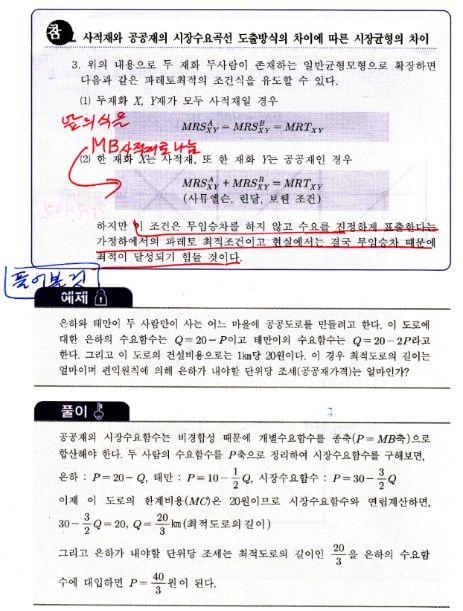 콤 사적재와 공공재의 시장수요곡선 도출방식의 차이에 따른 시장균형의 차이
3. 위의 내용으로 두 재화 두사람이 존재하는 일반균형모형으로 확장하면
다음과 같은 파레토최적의 조건식을 유도할 수 있다.
(1) 두재화 X, Y재가 모두 사적재일 경우
앞의식을
MRS^A_XY = MRS^B_XY = MRT_XY
MB사적재로나눔
(2) 한 재화 X는 사적재, 또 한 재화 Y는 공공재인 경우
MRS^A_XY + MRS^B_XY = MRT_XY
(사뮤엘슨, 린달, 보웬 조건)
하지만 이 조건은 무임승차를 하지 않고 수요를 진정하게 표출한다는
가정하에서의 파레토 최적조건이고 현실에서는 결국 무임승차 때문에
최적이 달성되기 힘들 것이다.
풀어볼것
예제
은하와 태만이 두 사람만이 사는 어느 마을에 공공도로를 만들려고 한다. 이 도로에
대한 은하의 수요함수는 Q=20-P이고 태만이의 수요함수는 Q=20-2P라고
한다. 그리고 이 도로의 건설비용으로는 1km당 20원이다. 이 경우 최적도로의 길이는
얼마이며 편익원칙에 의해 은하가 내야할 단위당 조세(공공재가격)는 얼마인가?
풀이
공공재의 시장수요함수는 비경합성 때문에 개별수요함수를 종축(P=MB축)으로
합산해야 한다. 두 사람의 수요함수를 P축으로 정리하여 시장수요함수를 구해보면,
은하 : P=20-Q, 태만 : P=10-1/2Q, 시장수요함수 : P=30-3/2Q
이제 이 도로의 한계비용(MC)은 20원이므로 시장수요함수와 연립계산하면,
30-3/2Q=20, Q=20/3km(최적도로의길이)
그리고 은하가 내야할 단위당 조세는 최적도로의 길이인 20/3을 은하의 수요함
수에 대입하면 P=40/3원이 된다.